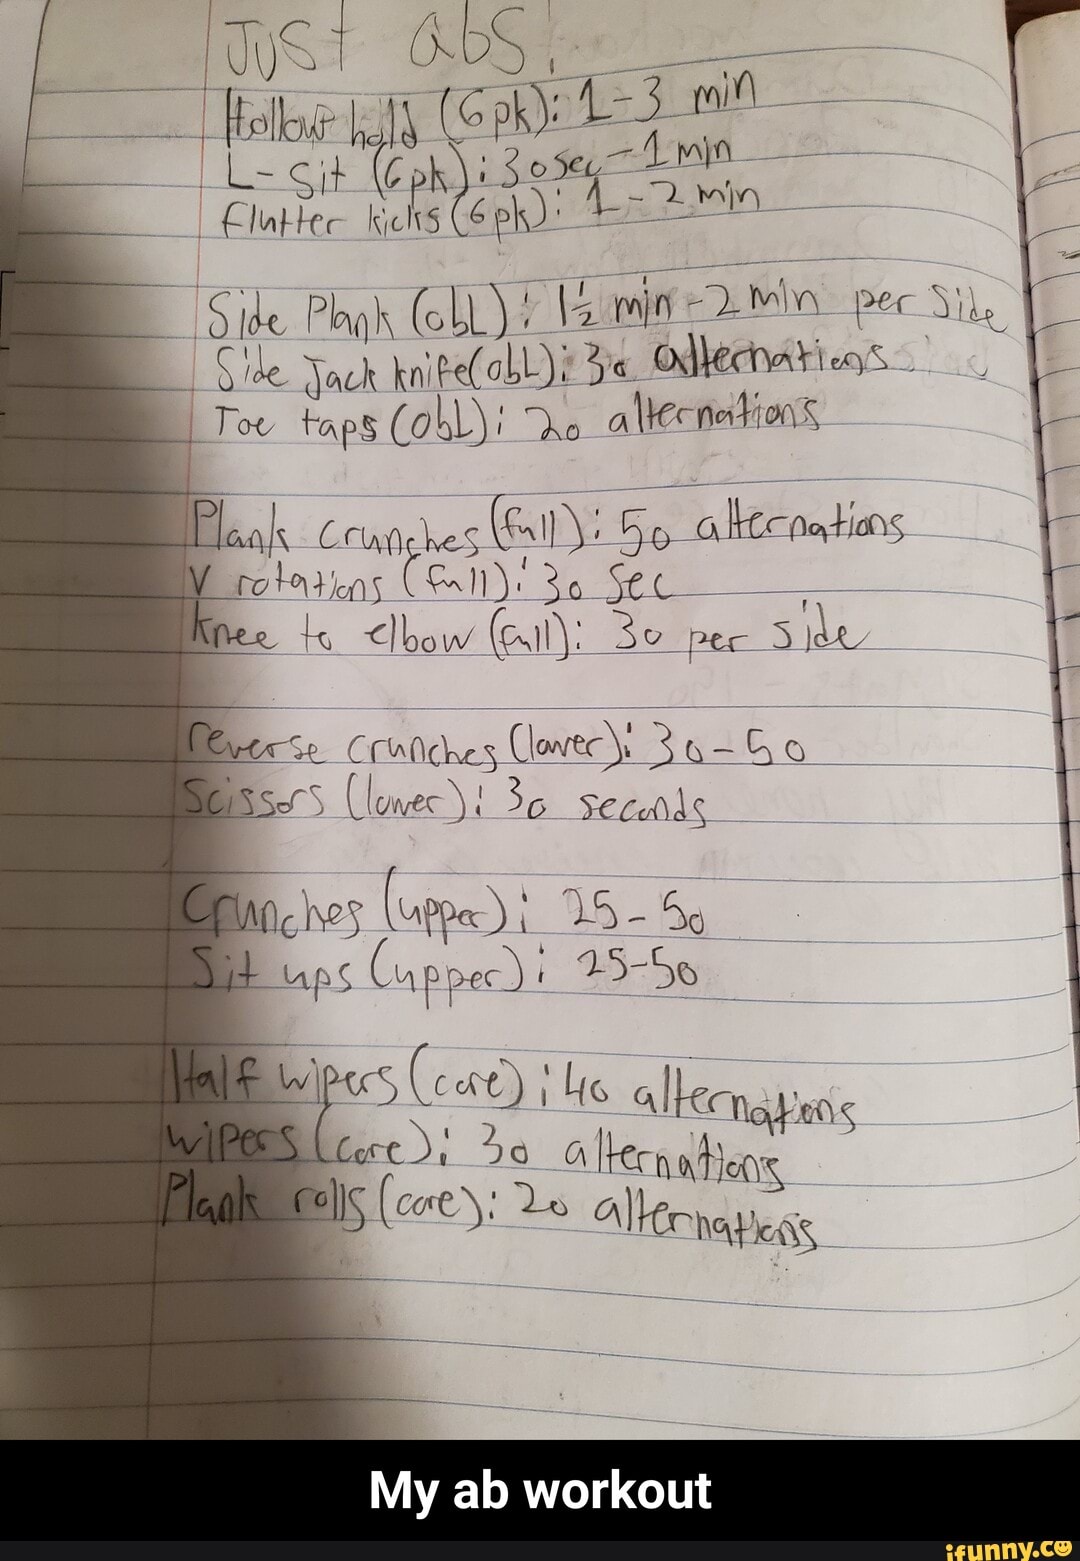 JUST abs!
Hollow hold (6pk): 1-3 min
L-Sit (6pk): 30sec-1min
flutter kicks(6pk): 1-2 min
Side Plank (obL): 1½ min-2min per Side
Side Jack knife(obL): 30 alternations
Toe taps (obL): 20 alternations
Plank crunches(full): 50 alternations
V rotations (full): 30 Sec
knee to elbow (full): 30 per side
reverse crunches (lower): 30-50
Scissors (lower): 30 seconds
Crunches (upper): 25-50
Sit ups (upper): 25-50
Half wipers (core): 40 alternations
wipers (core): 30 alternations
Plank rolls (core): 20 alternations
My ab workout
ifunny.co